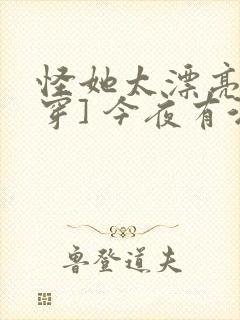 怪她太漂亮
穿] 今夜有
鲁登道夫